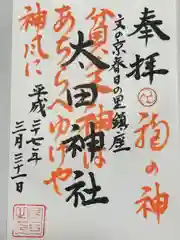 奉拝
狛の神
文の京春日の里鎮座
太田神社
貧乏神は
あちらへゆけや
神風に
平成二十七年
三月三十一日